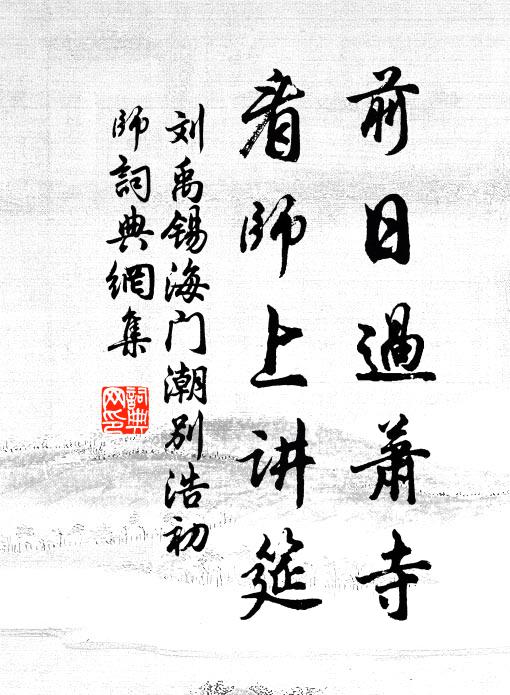 前日過蕭寺
看師上讲筵
刘禹锡海门潮别浩初
师詞典網集
詞典
网印